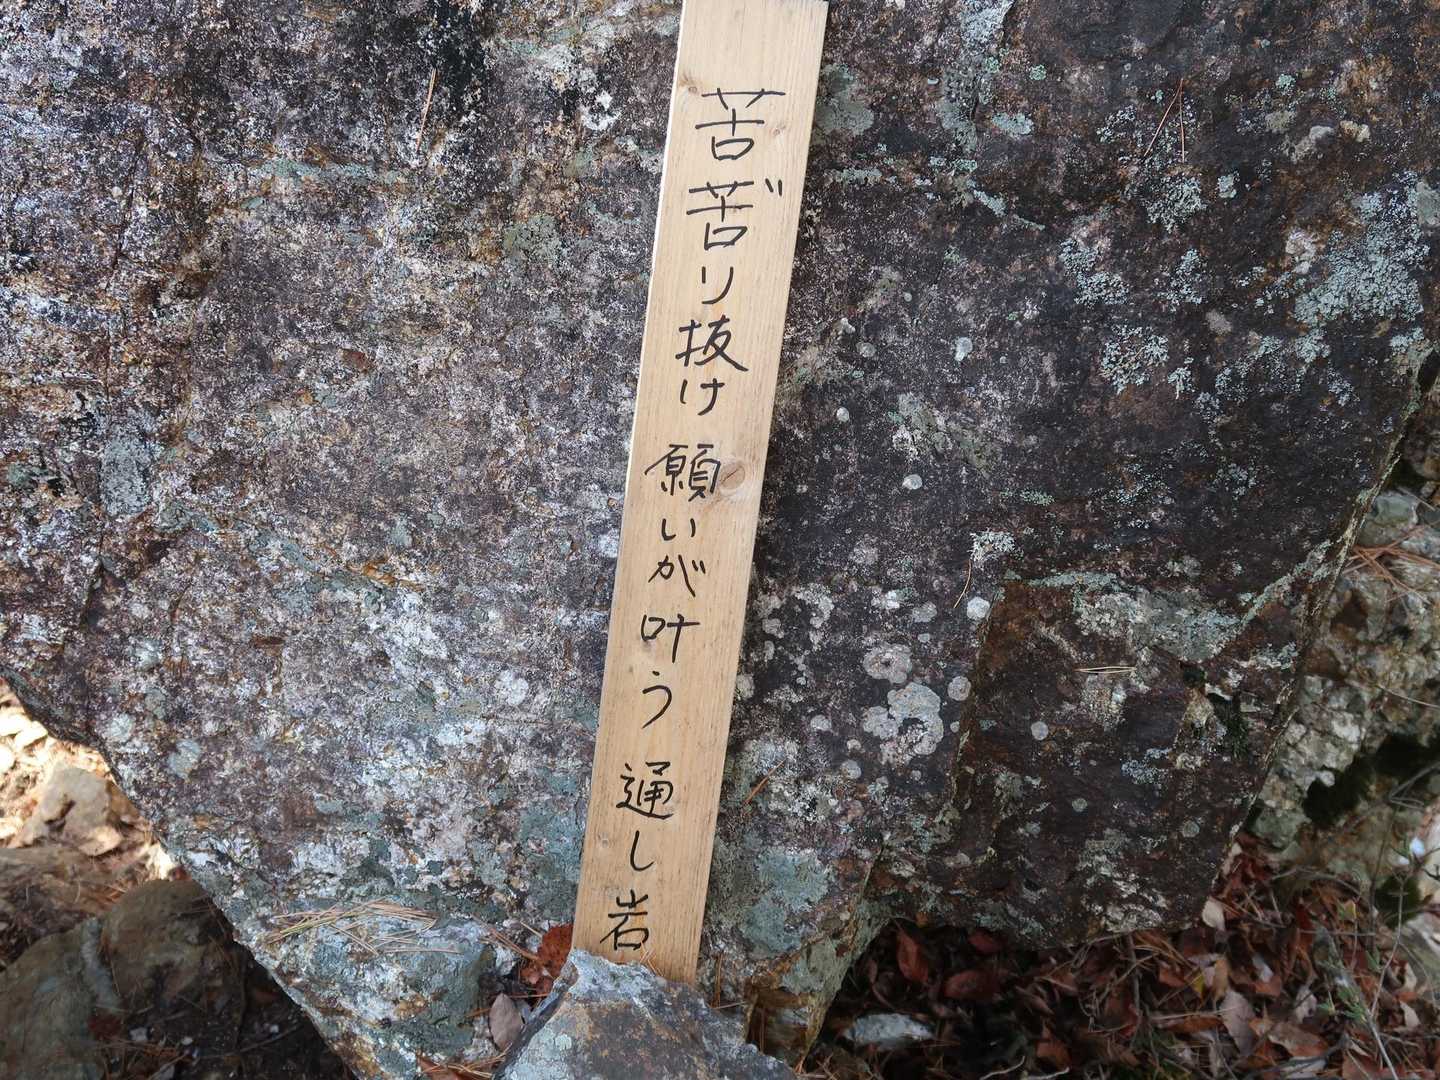 苦苦゛り抜け 願いが叶う 通し岩